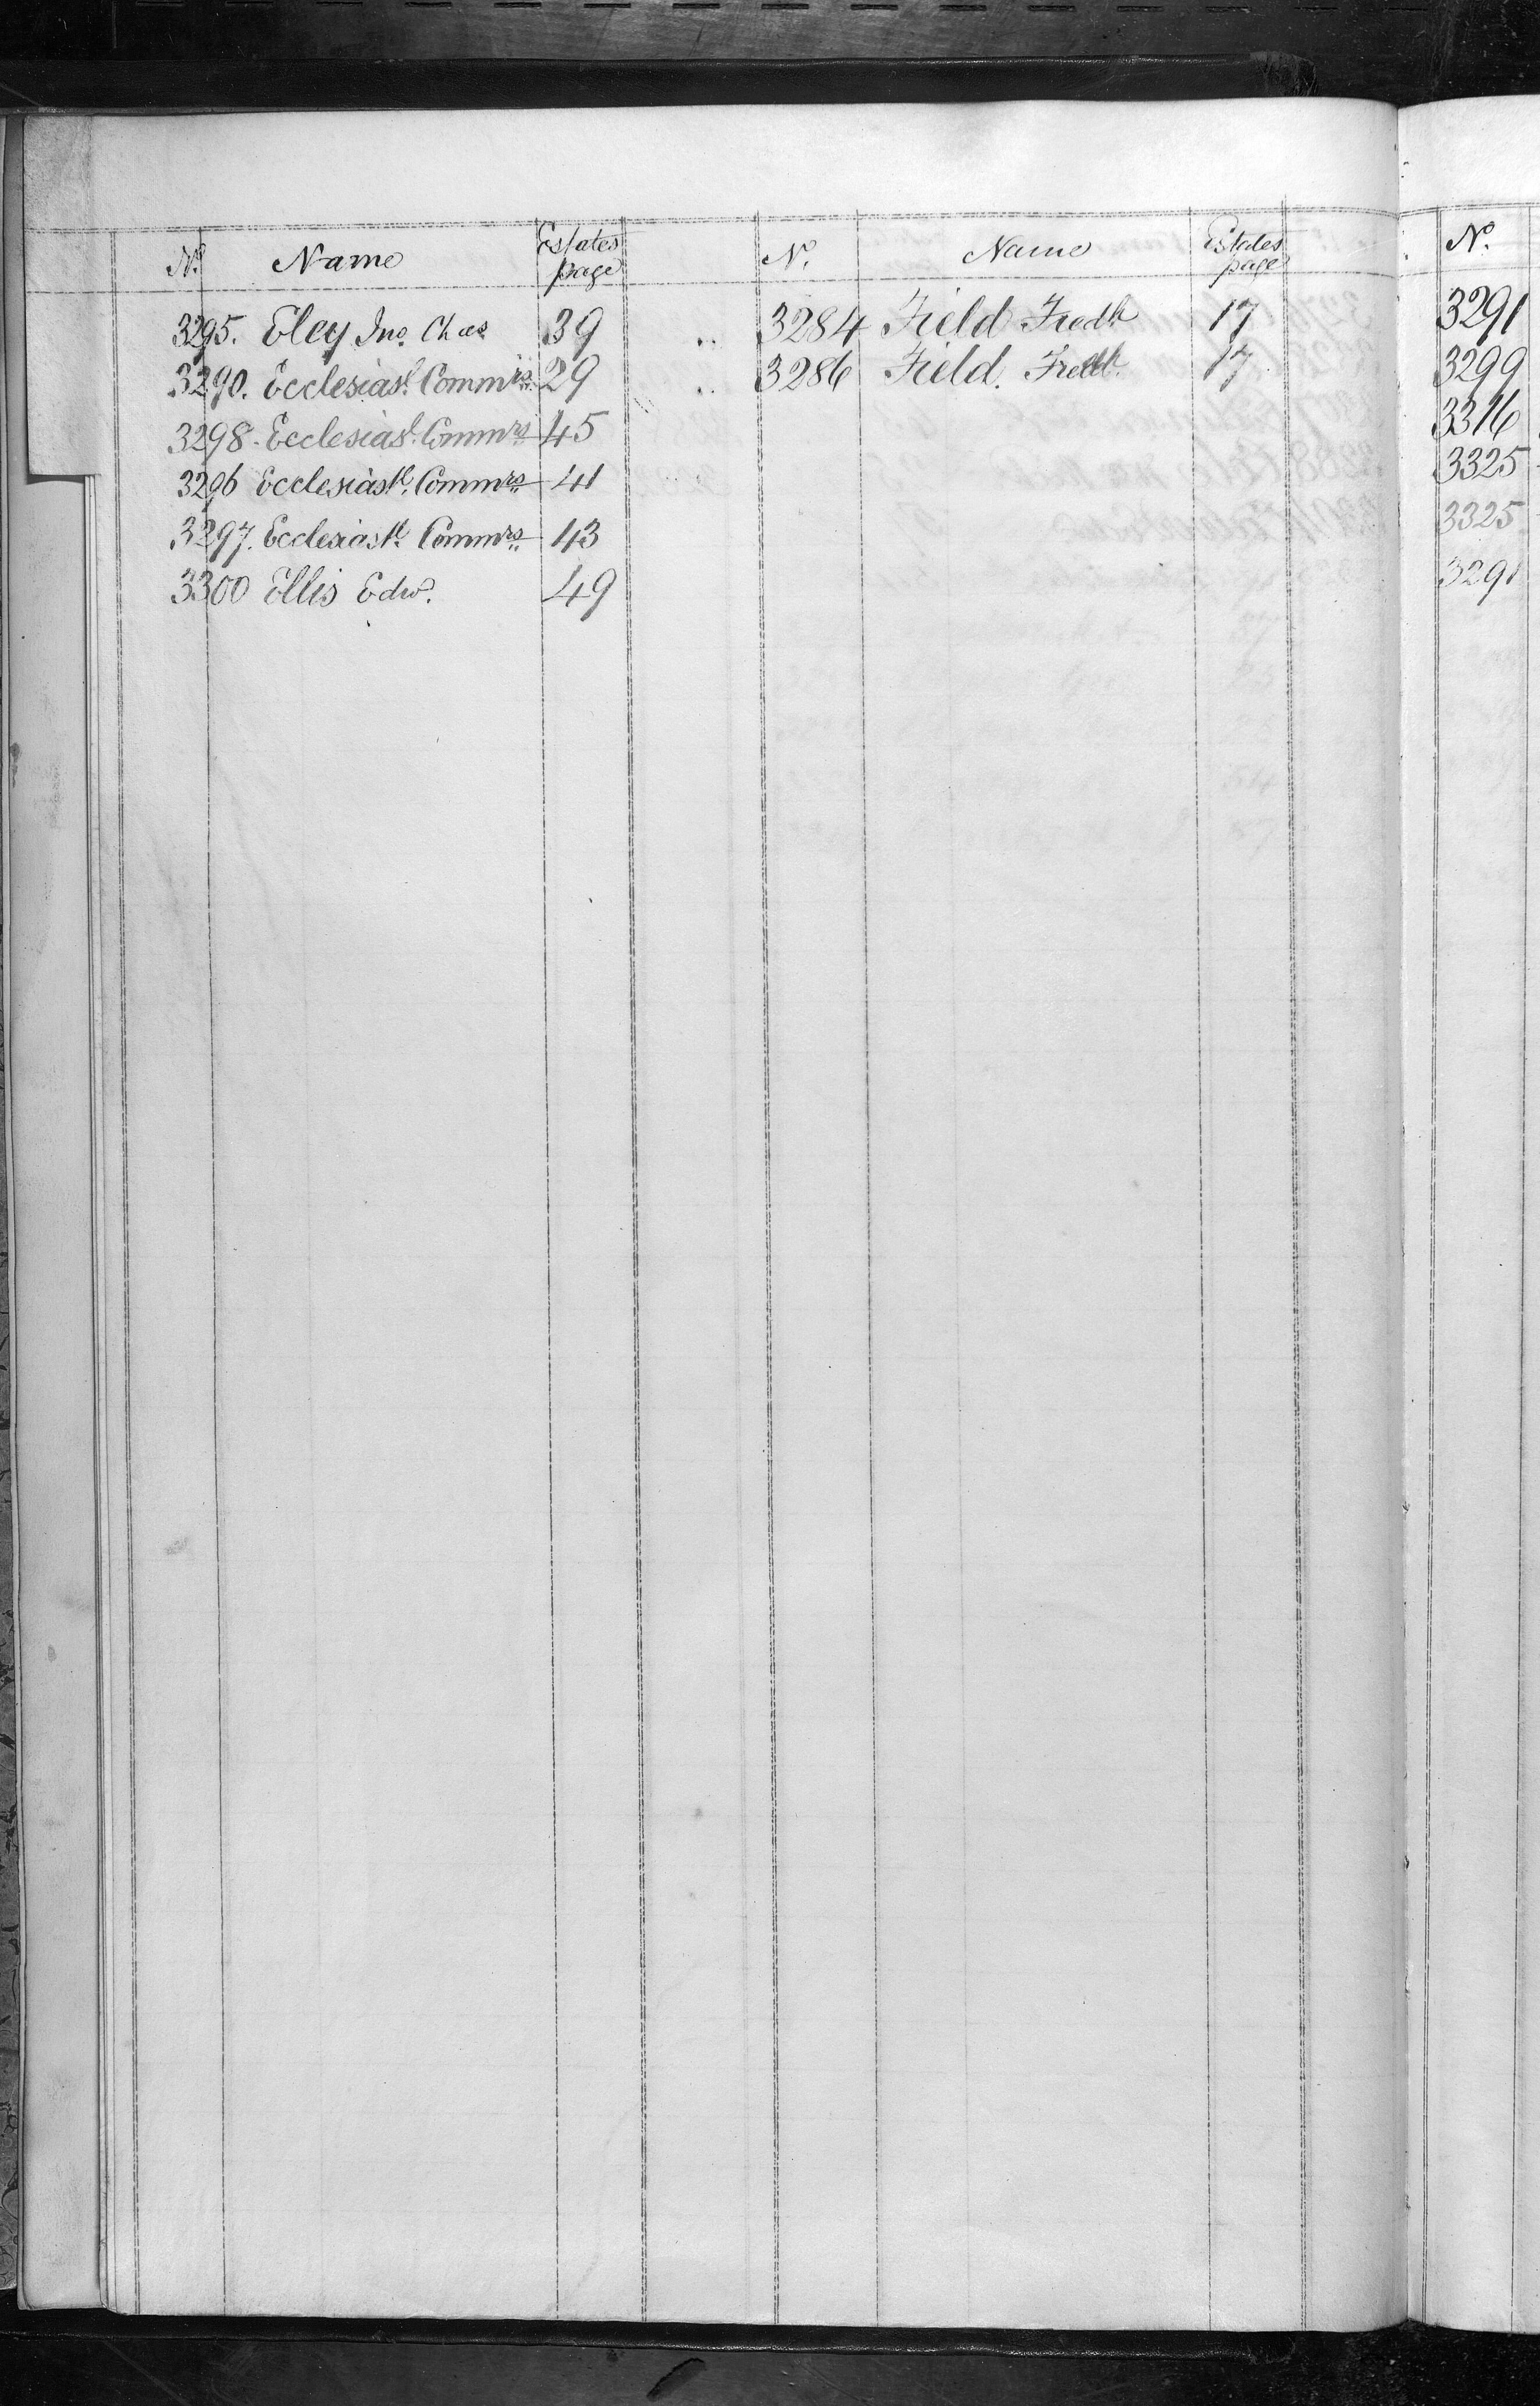 No. Name Estates page
3295. Eley Jno. Chas 39
3290. Ecclesiastl. Commrs 29
3298. Ecclesiastl. Commrs 45
3296 Ecclesiastl. Commrs 41
3297. Ecclesiastl. Commrs 43
3300 Ellis Edwd. 49
No. Name Estates page
3284 Field Fredk 17
3286 Field. Fredk. 17
No.
3291
3299
3316
3325
3325
3291